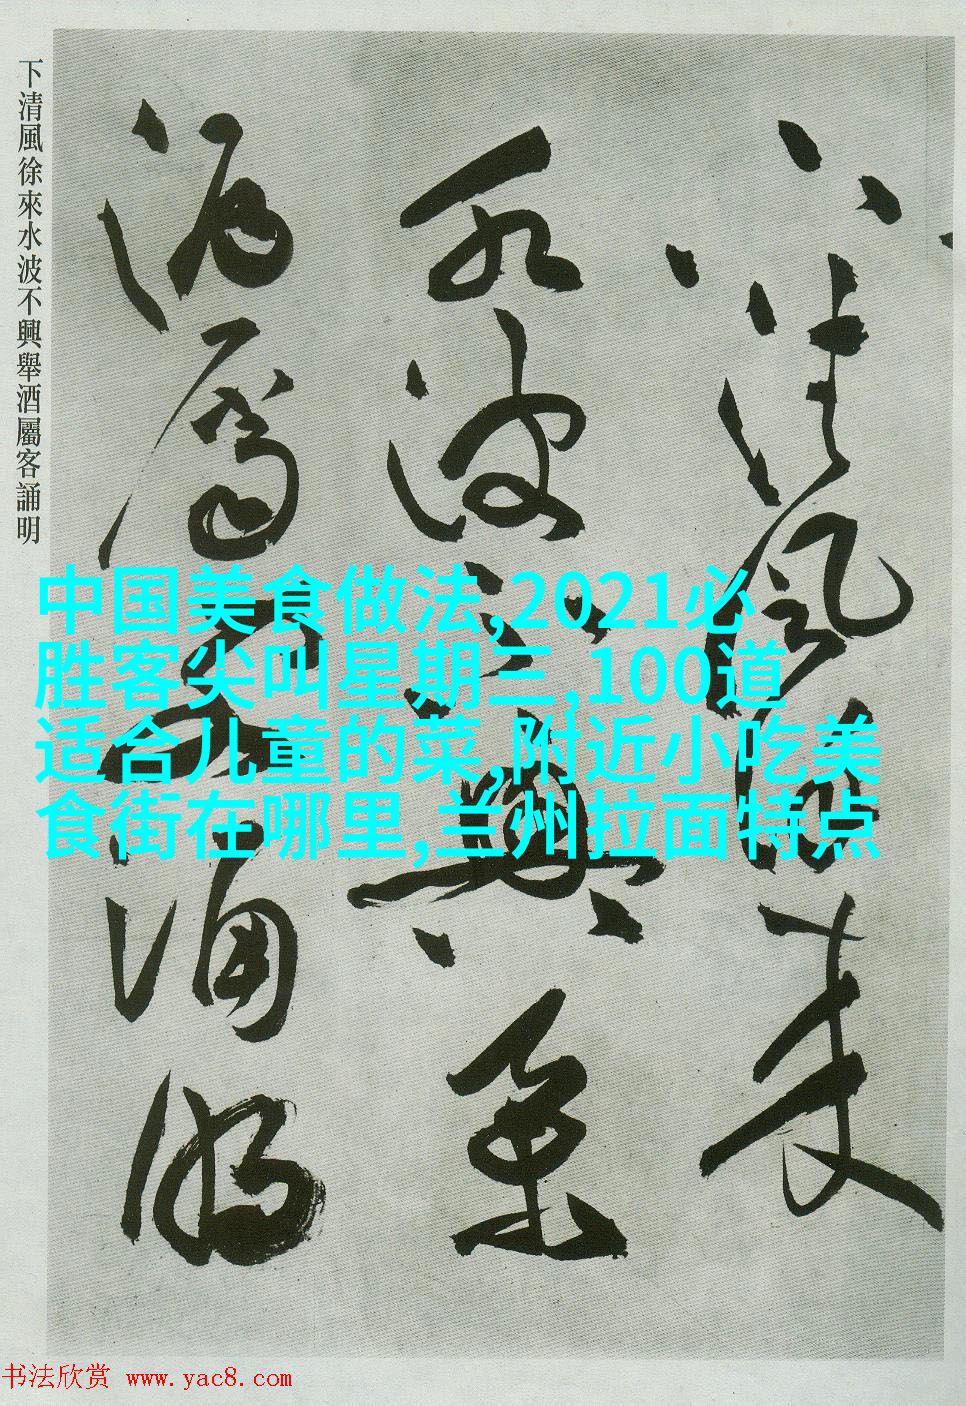 下清風徐來
水波不興舉
酒屬客誦明
下清風徐來水波不興舉酒屬客誦明
中国美食做法,2021必
胜客尖叫星期三,100道
适合儿童的菜,附近小吃美
食街在哪里,兰州拉面特点
书法欣赏 www.yac8.com